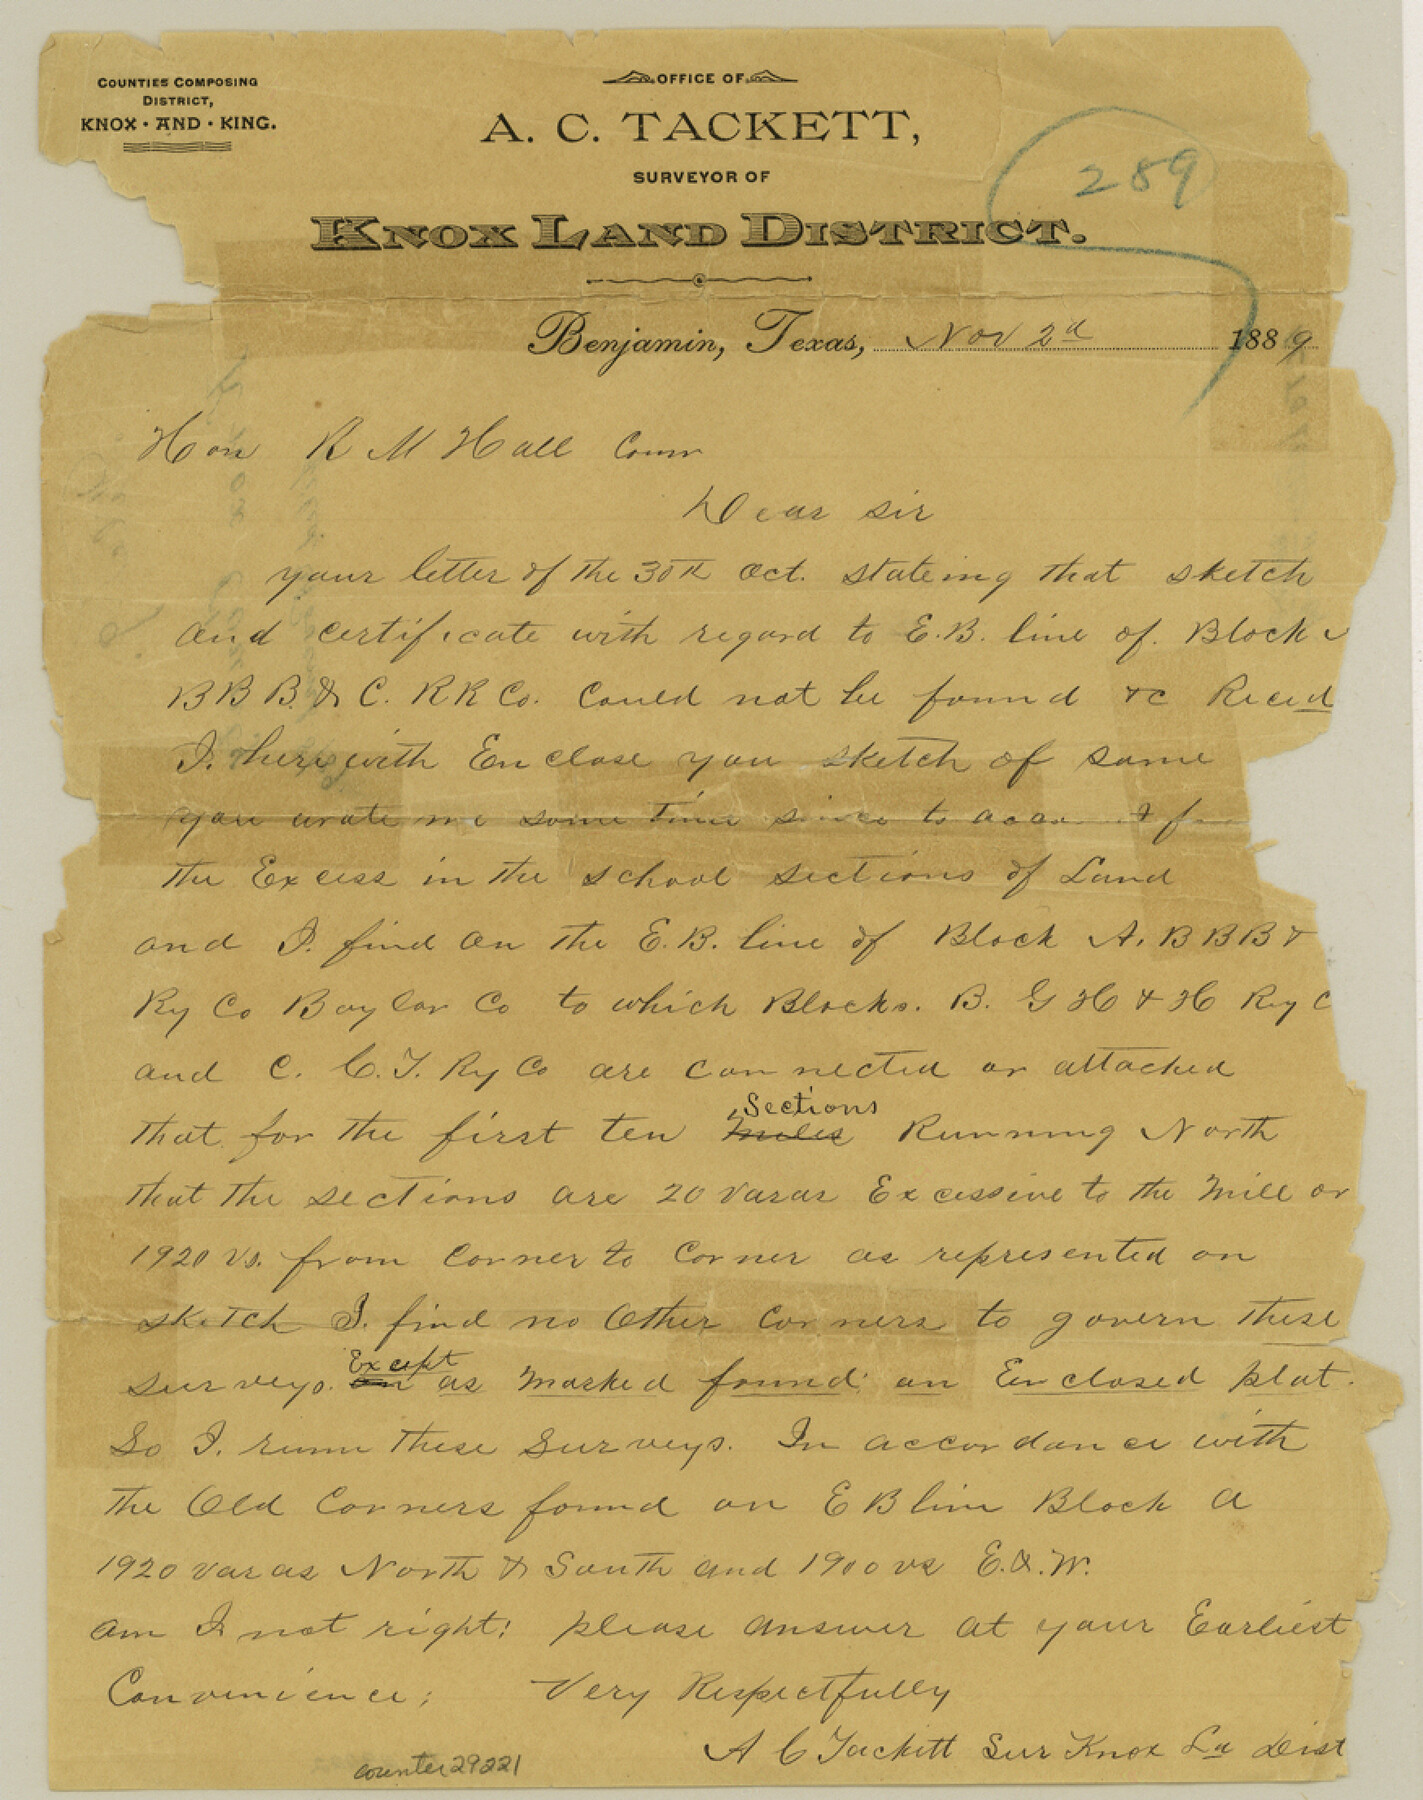 COUNTIES COMPOSING
DISTRICT,
KNOX · AND · KING.
OFFICE OF
A. C. TACKETT,
SURVEYOR OF
KNOX LAND DISTRICT.
289
Benjamin, Texas, Nov 2d 1889
Hon R M Hall Comr
Dear sir
your letter of the 30th Oct. stateing that sketch
and certificate with regard to E.B. line of Block
B B B. & C. R R Co. Could not be found &c Recd
I. herewith Enclose you sketch of same
you wrote me some time since to
the Excess in the school sections of Land
and I. find on the E.B. line of Block A. B B B &
Ry Co Baylor Co to which Blocks. B. G H & H Ry C
and C. C. T. Ry Co are connected or attached
Sections
that for the first ten miles Running North
that the sections are 20 varas Excessive to the mile or
1920 vs. from Corner to Corner as represented on
sketch I. find no Other Corners to govern these
Except
surveys. on as marked found on Enclosed plat.
So I. runn these Surveys. In accordance with
the Old Corners found on E B line Block A
1920 varas North & South and 1900 vs E. & W.
am I not right; please answer at your Earliest
Convenience; Very Respectfully
A C Tackett Sur Knox Ld Dist
counter 29221